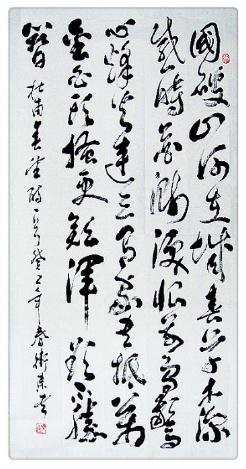 國破山河在城春草木深
感時花濺淚恨別鳥驚
心烽火連三月家書抵萬
金白頭搔更短渾欲不勝
簪 杜甫春望詩一首癸巳年春